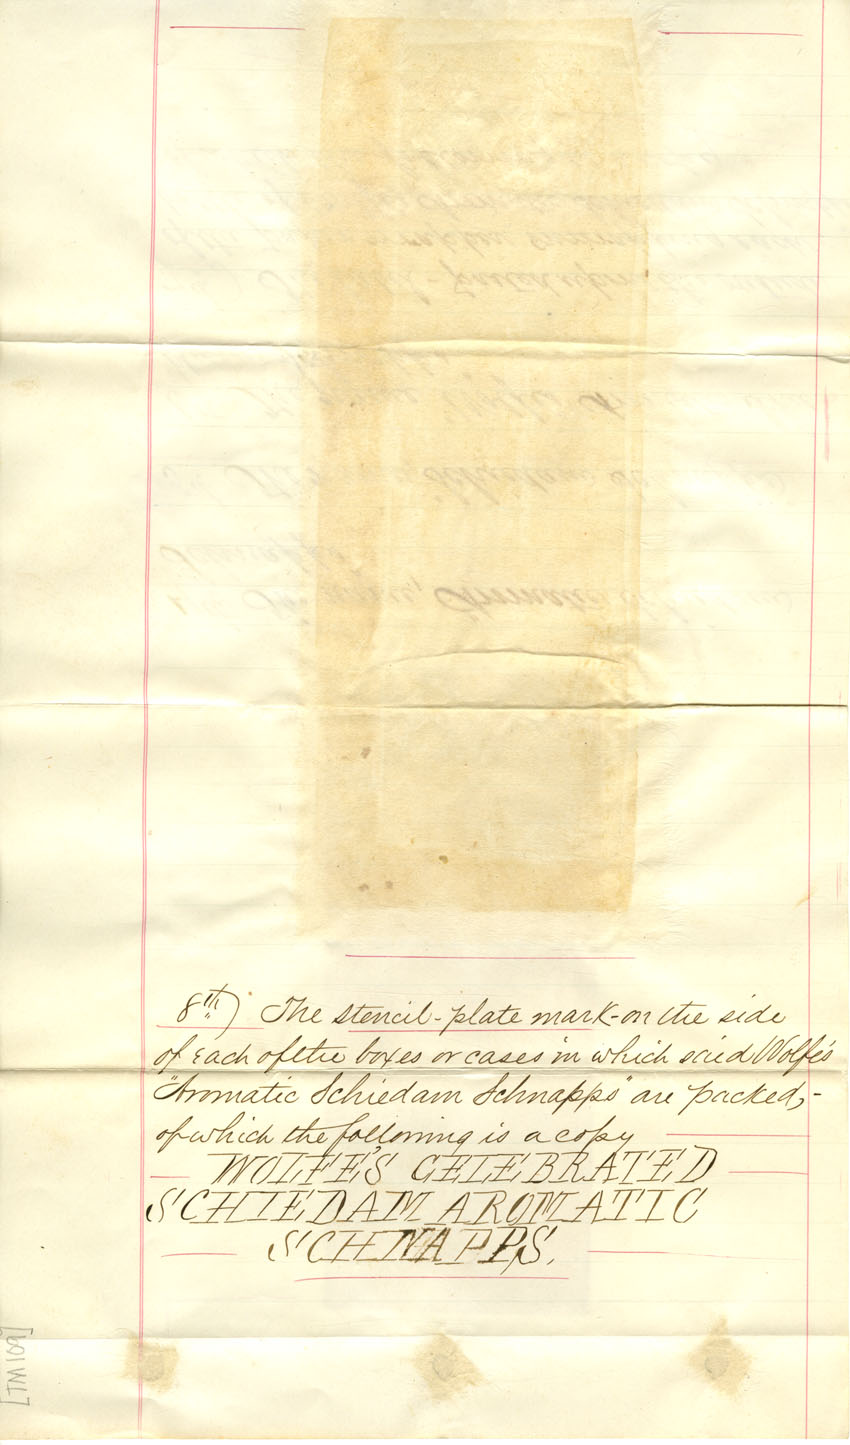 8th) The stencil-plate mark-on the side
of each of the boxes or cases in which said Wolfe's
"Aromatic Schiedam Schnapps" are packed,-
of which the following is a copy
WOLFE'S CELEBRATED
SCHIEDAM AROMATIC
SCHNAPPS.
[TM109]